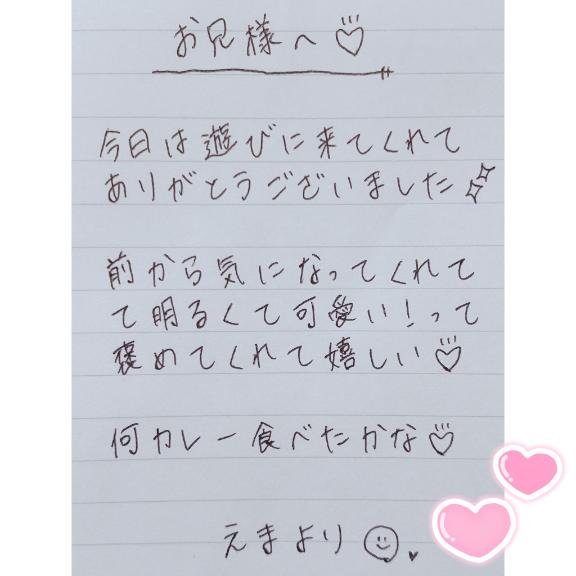 お兄様へ♡
今日は遊びに来てくれて
ありがとうございました✨
前から気になってくれて
て明るくて可愛い!って
褒めてくれて嬉しい♡
何カレー食べたかな♡
えまより☺♥